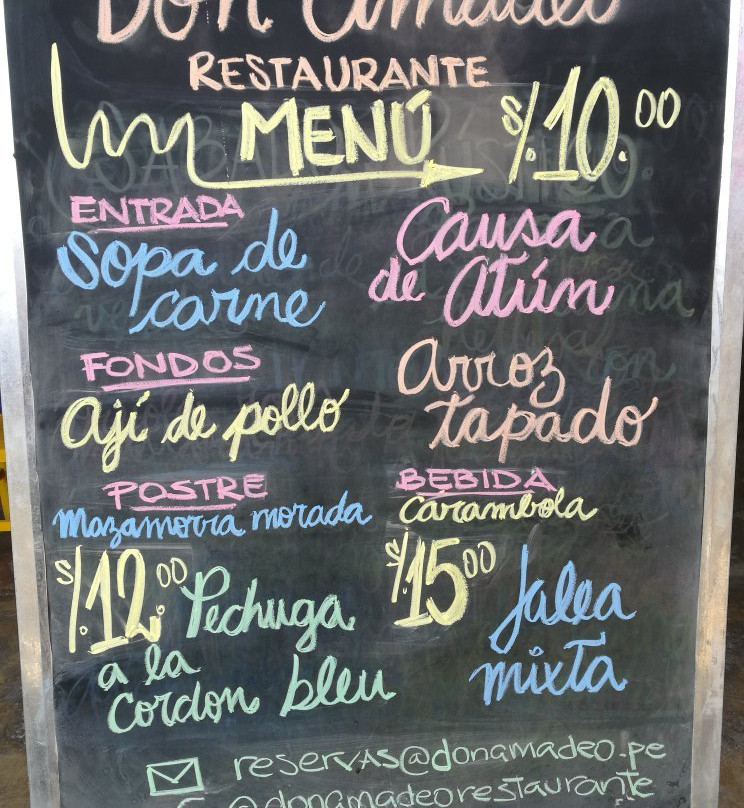 Don Amadeo
RESTAURANTE
MENÚ S/.10.00
ENTRADA
Sopa de carne
Causa de Atún
FONDOS
Ají de pollo
Arroz tapado
POSTRE
Mazamorra morada
BEBIDA
Carambola
S/.12.00 Pechuga
a la
cordon bleu
S/.15.00 Jalea
mixta
reservas@donamadeo.pe
@donamadeorestaurante